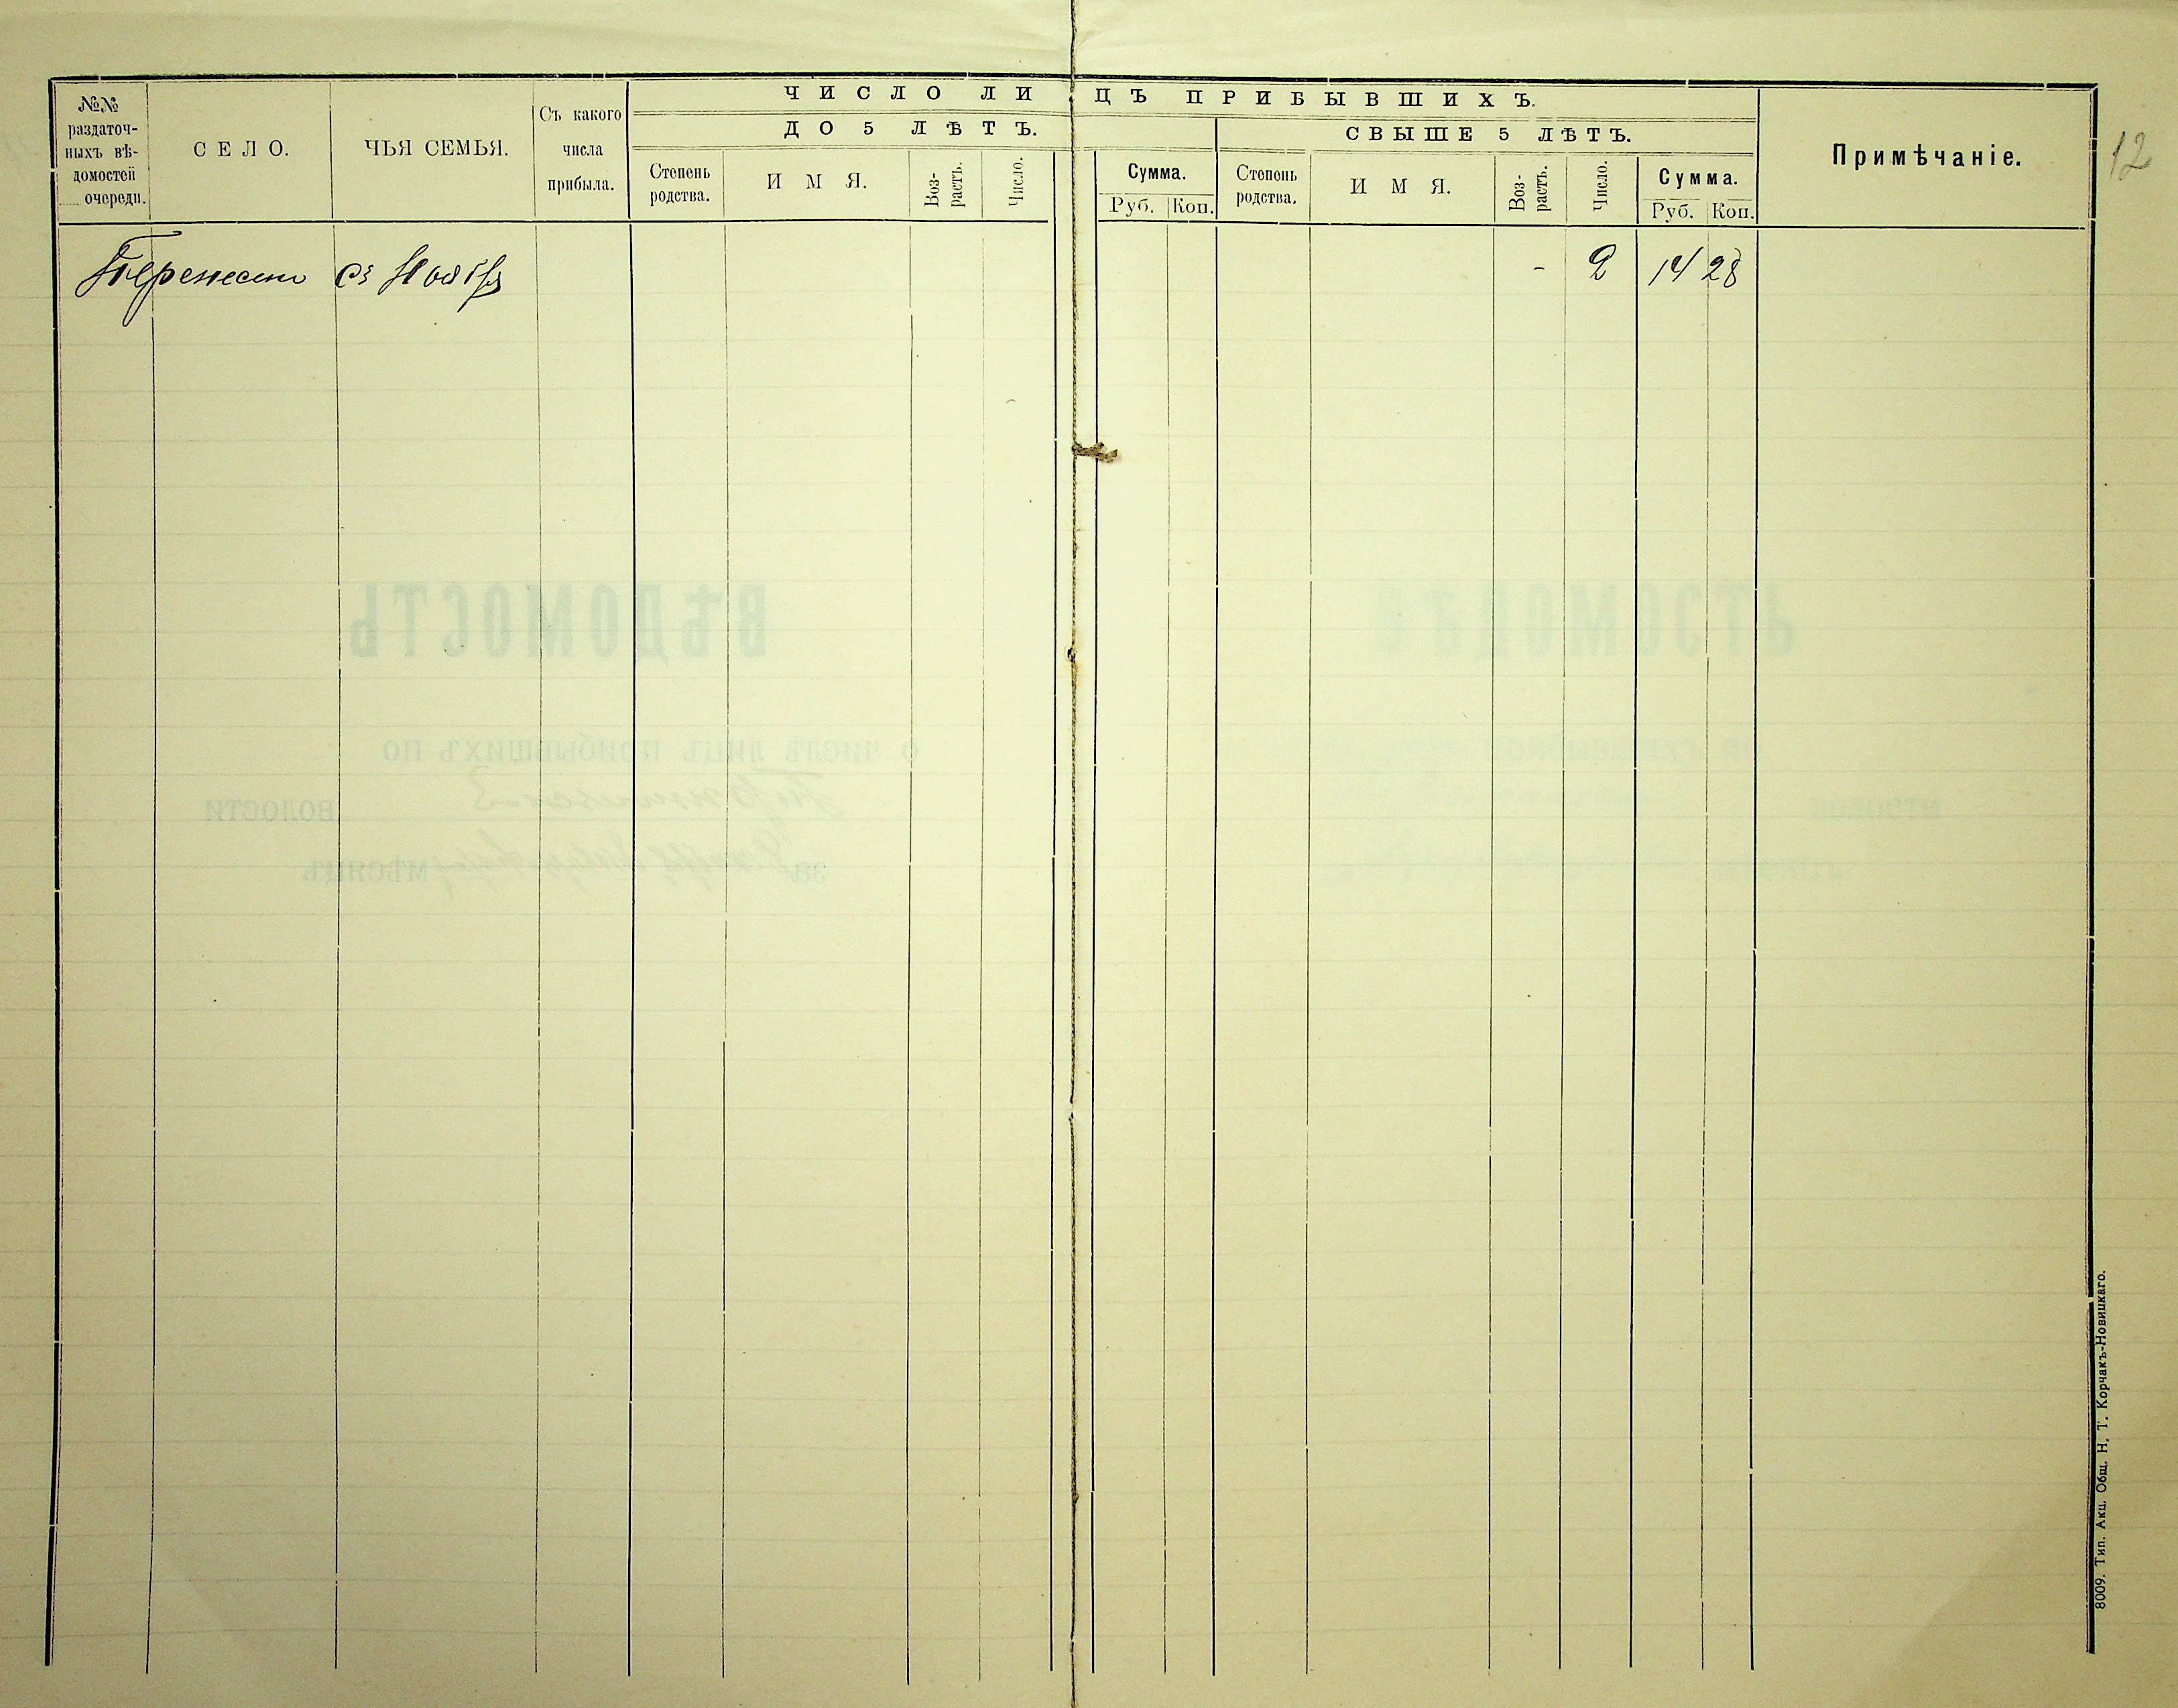 №№ раздаточ-
ныхъ вѣ-
домостей
...... очереди.
СЕЛО.
ЧЬЯ СЕМЬЯ.
Съ какого
числа
прибыла.
ЧИСЛО ЛИЦЪ ПРИБЫВШИХЪ.
ДО 5 ЛѢТЪ.
Степень
родства.
ИМЯ.
Воз-
растъ.
Число.
Сумма.
Руб. Коп.
СВЫШЕ 5 ЛѢТЪ.
Степень
родства.
ИМЯ.
Воз-
растъ.
Число.
Сумма.
Руб. Коп.
Примѣчаніе.
12
съ Ноября - 2 14 28
ВѢДОМОСТЬ
о числѣ лицъ прибывшихъ по
волости
за мѣсяцъ
8009. Тип. Акц. Общ. Н. Т. Корчакъ-Новицкаго.